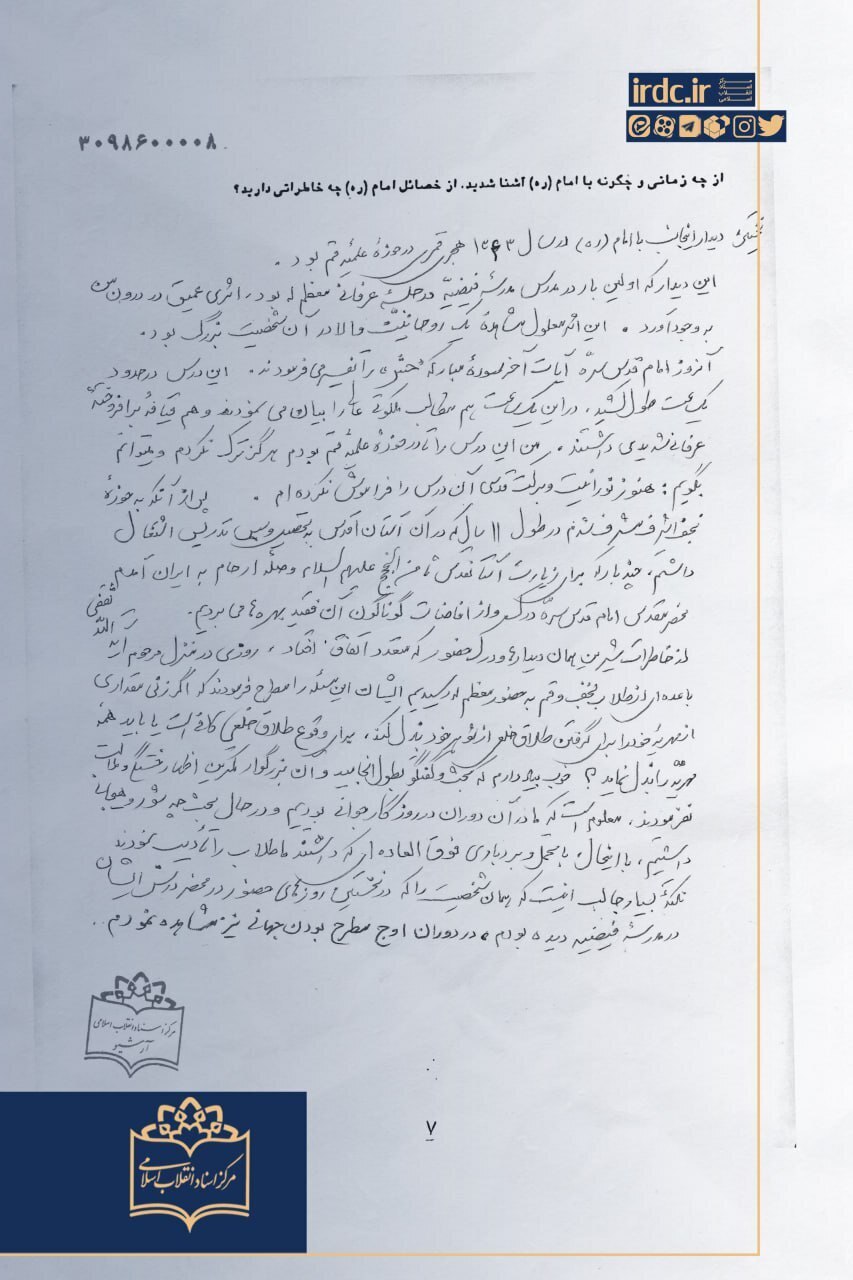 irdc.ir
مرکز
اسناد
انقلاب
اسلامی
۳۰۹۸۶۰۰۰۰۸
از چه زمانی و چگونه با امام (ره) آشنا شدید. از خصائل امام (ره) چه خاطراتی دارید؟
نخستین دیدار اینجانب با امام (ره) در سال ۱۳۶۳ هجری قمری در حوزهٔ علمیه قم بود.
این دیدار که اولین بار در مدرس مدرسه فیضیّه و جلسهٔ عرفانی معظم له بود، اثری عمیق در درون من
به وجود آورد. این اثر معلول مشاهدهٔ یک روحانیّت والا در آن شخصیت بزرگ بود.
آنروز امام قدس سرّه آیات آخر سورهٔ مبارکه «حشر» را تفسیر می فرمودند. این درس در حدود
یک ساعت طول کشید، در این یک ساعت هم مطالب ملکوتی عالی را بیان می نمودند و هم قیافهٔ برافروختهٔ
عرفانی شدیدی داشتند. من این درس را تا در حوزهٔ علمیه قم بودم هرگز ترک نکردم و میتوانم
بگویم: هنوز نورانیت و برکت قدسی آن درس را فراموش نکرده ام. پس از آنکه به حوزهٔ
نجف اشرف مشرف شدم در طول ۱۱ سال که در آن آستان اقدس به تحصیل و سپس تدریس اشتغال
داشتم، چند بار که برای زیارت آستان قدس ثامن الحجج علیهم السلام وصلهٔ ارحام به ایران آمدم
محضر مقدس امام قدس سرّه درک و از افاضات گوناگون آن فقید بهره ها می بردیم.
از خاطرات شیرین همان دیدارها و درک حضور که متعدد اتفاق افتاد، روزی در منزل مرحوم آیة الله ثقفی
با عده ای از طلاب نجف و قم به حضور معظم له رسیدیم ایشان این مسئله را مطرح فرمودند که اگر زنی مقداری
از مهریهٔ خود را برای گرفتن طلاق خلع از شوهر خود بذل کند، برای وقوع طلاق خلعی کافی است یا باید همهٔ
مهریّه را بذل نماید؟ خوب بیاد دارم که بحث و گفتگو بطول انجامید و آن بزرگوار کمترین اظهار خستگی و ملالت
نفرمودند. معلوم است که ما در آن دوران در روزگار جوانی بودیم و در حال بحث چه شور و هیجانی
داشتیم، با اینحال با تحمل و بردباری فوق العاده ای که داشتند ما طلاب را تأدیب نمودند
نکتهٔ بسیار جالب اینست که همان شخصیت را که در نخستین روزهای حضور در محضر درس ایشان
در مدرسه فیضیه دیده بودم، در دوران اوج مطرح بودن جهانی نیز مشاهده نمودم..
مرکز اسناد انقلاب اسلامی
آرشیو
۷
مرکز اسناد انقلاب اسلامی